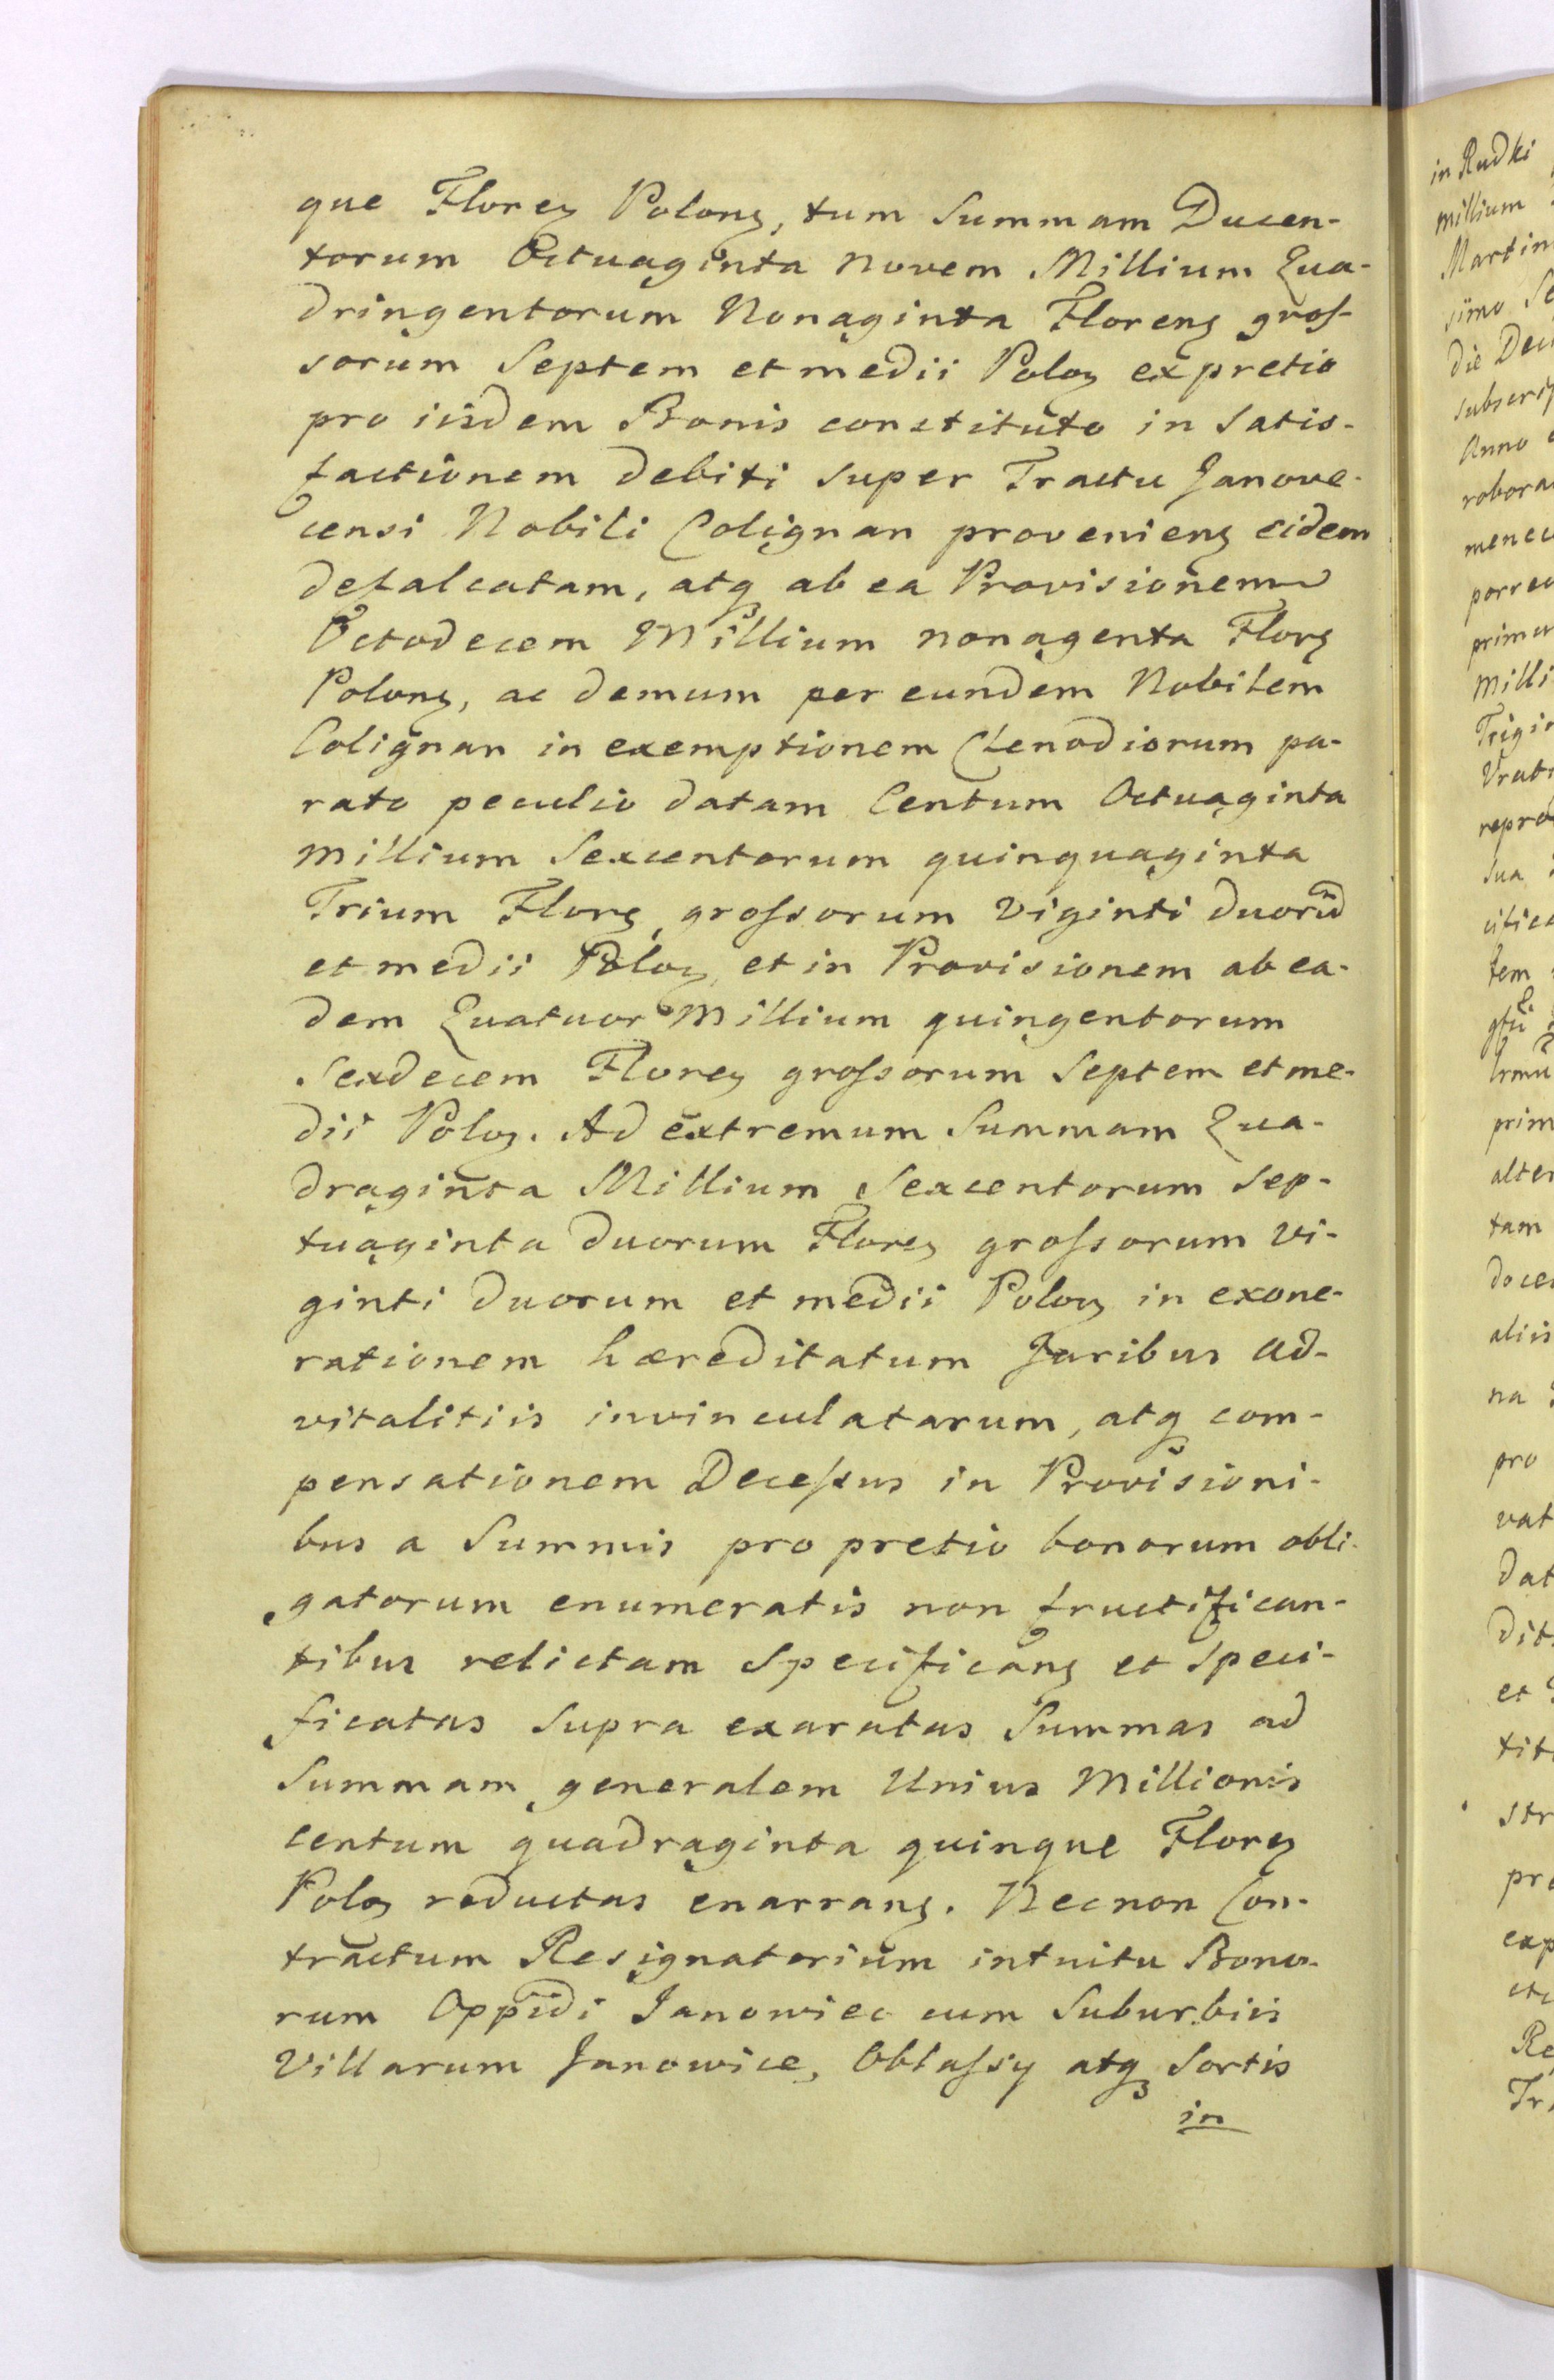 que Floreꝫ Polonꝫ, tum Summam Ducen-
torum Octuaginta Novem Millium Qua-
dringentorum Nonaginta Florenꝫ gros-
sorum Septem et medii Poloꝫ ex pretio
pro iisdem Bonis constituto in Satis-
factionem debiti super Tractu Janove-
censi Nobili Colignan provenienꝫ eidem
defalcatam, atqꝫ ab ea Provisionem
Octodecem Millium nonagenta Florꝫ
Polonꝫ, ac demum per eundem Nobilem
Colignan in exemptionem Clenodiorum pa-
rato peculio datam Centum Octuaginta
Millium Sexcentorum quinquaginta
Trium Florꝫ, grossorum Viginti duorũ
et medii Poloꝫ, et in Provisionem ab ea-
dem Quatuor Millium quingentorum
Sexdecem Floreꝫ grossorum Septem et me-
dii Poloꝫ. Ad extremum Summam Qua-
draginta Millium Sexcentorum Sep-
tuaginta duorum Floreꝫ grossorum Vi-
ginti duorum et medii Poloꝫ in exone-
rationem hæreditatum Juribus Ad-
vitalitiis invinculatarum, atqꝫ com-
pensationem Decessus in Provisioni-
bus a Summis pro pretio bonorum obli-
gatorum enumeratis non fructifican-
tibus relictam Specificanꝫ et Speci-
ficatas Supra exaratas Summas ad
Summam generalem Unius Millionis
centum quadraginta quinque Floreꝫ
Poloꝫ reductas enarranꝫ. Necnon Con-
tractum Resignatorium intuitu Bono-
rum Oppidi Janowiec cum Suburbiis
Villarum Janowice, Oblassy atqꝫ Sortis
in
in Rudki
millium
Martin
simo Se
die Dec
subscrip
Anno
robora
menec
porrec
prima
Milli
Trigin
Vrat
repro
sua
cific
tem
prim
alter
tam
doce
aliis
na
pro
vat
dat
dit
et
tit
str
pro
exp
etc
Re
Tr